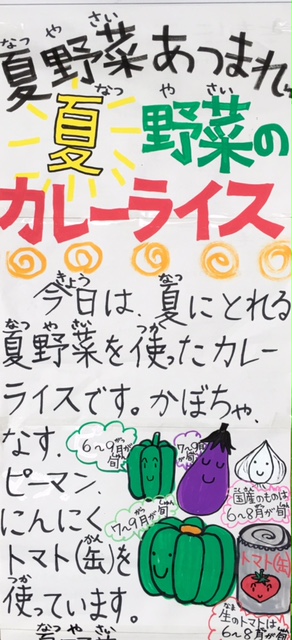 なつやさい
夏野菜あつまれ
なつ や さい
夏野菜の
カレーライス
きょう なつ
今日は、夏にとれる
なつ や さい つか
夏野菜を使ったカレー
ライスです。かぼちゃ、
なす、
ピーマン、
にんにく、
かん
トマト(缶)を
つか
使っています。
6〜9月が旬
7〜9月が旬
国産のものは
6〜8月が旬
7〜9月が旬
トマト(缶)
生のトマトは
6〜8月が旬